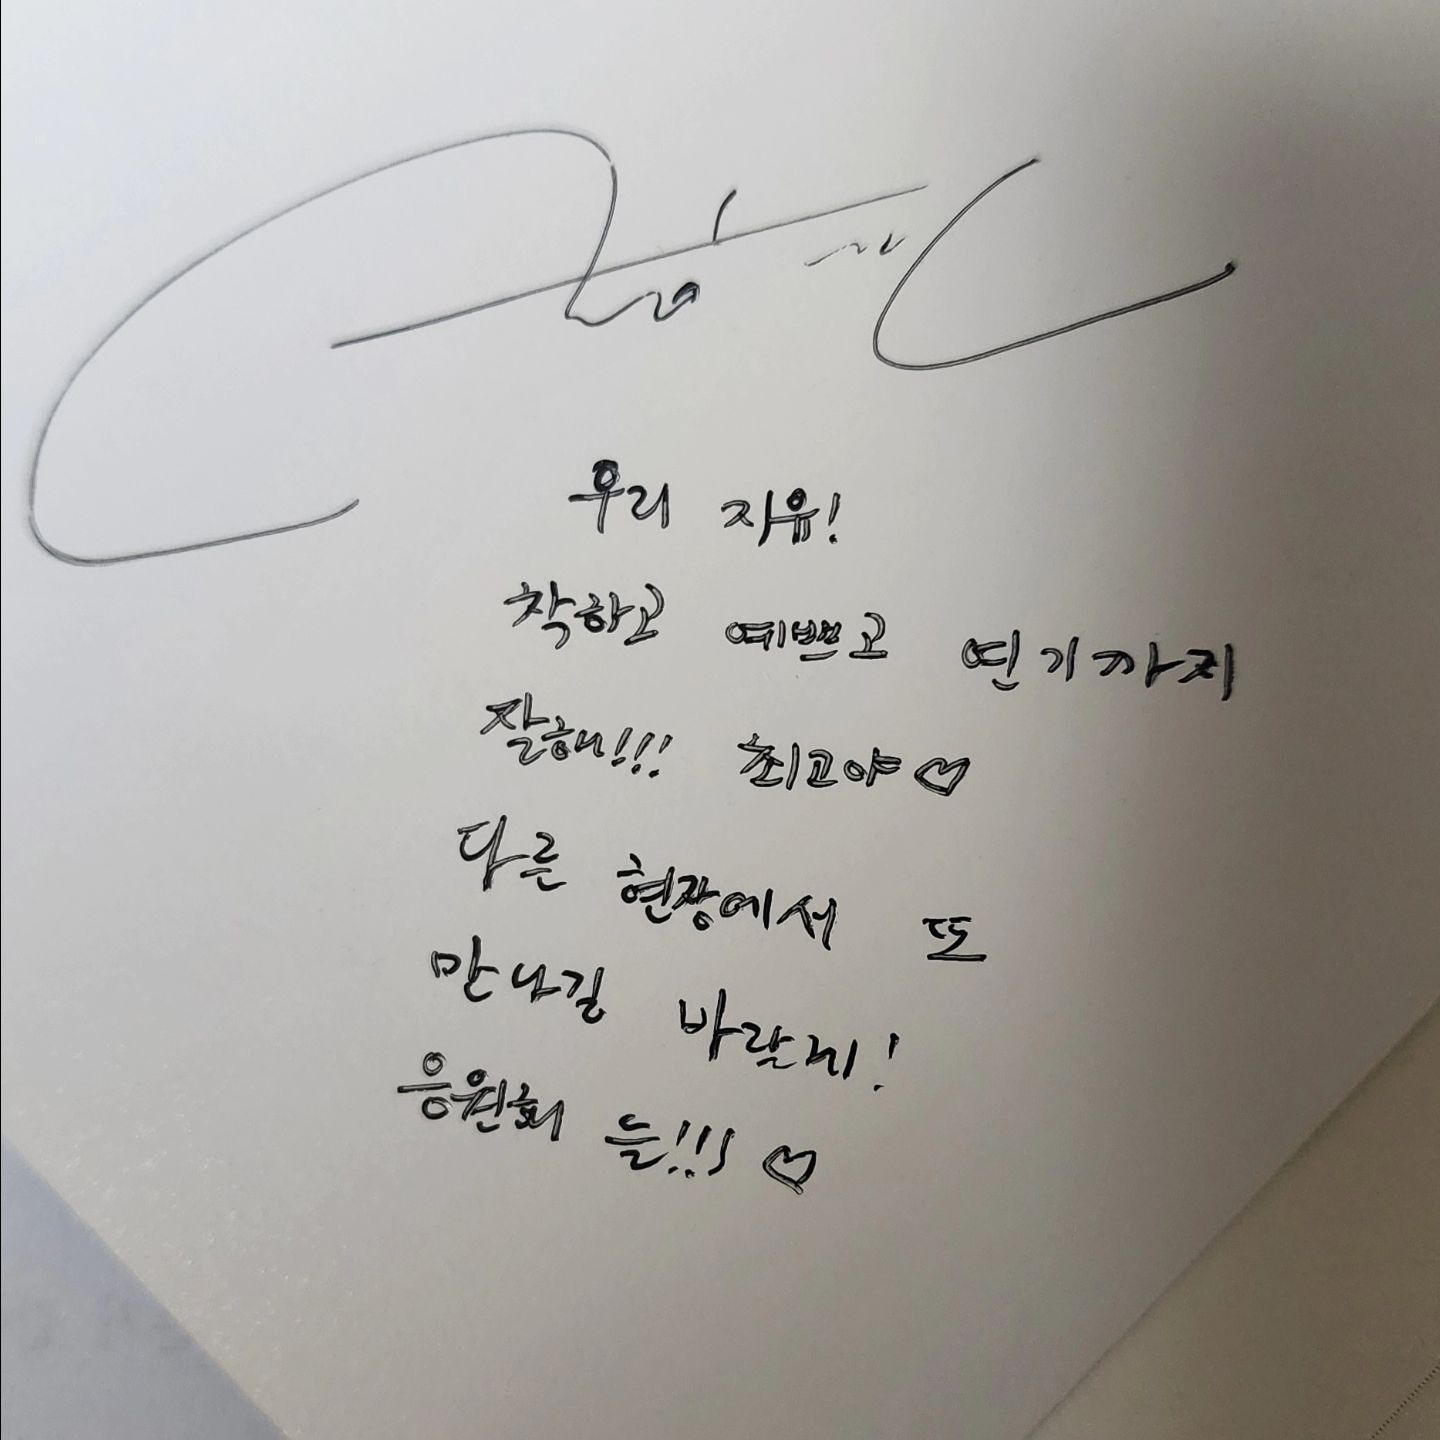 우리 자유!
착하고 예쁘고 연기까지
잘해!!! 최고야♡
다른 현장에서 또
만나길 바랄게!
응원해 늘!!! ♡